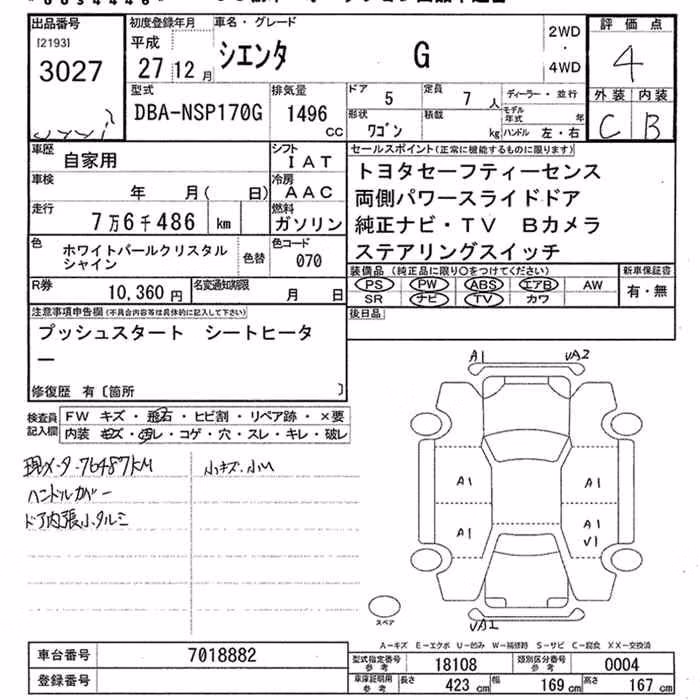 出品番号
[2193]
3027
初度登録年月
平成
27 12 月
車名・グレード
シエンタ G
2WD
・
4WD
評価点
4
外装 内装
C B
型式
DBA-NSP170G
排気量
1496 CC
ドア
5
定員
7 人
ディーラー・並行
モデル年式 年
形状
ワゴン
積載
kg
ハンドル 左・右
車歴
自家用
シフト
IAT
車検
年 月( 日)
冷房
AAC
走行
7万6千486 km
燃料
ガソリン
色
ホワイトパールクリスタル
シャイン
色替
色コード
070
R券
10,360 円
名変通知期限
月 日
セールスポイント(正常に機能するものに限ります)
トヨタセーフティーセンス
両側パワースライドドア
純正ナビ・TV Bカメラ
ステアリングスイッチ
装備品(純正品に限り〇をつけてください)
PS PW ABS エアB AW
SR ナビ TV カワ
新車保証書
有・無
後日品
注意事項申告欄(不具合内容等は具体的に記入して下さい)
プッシュスタート シートヒータ
ー
修復歴 有〔箇所 〕
検査員
記入欄
FW キズ・飛石・ヒビ割・リペア跡・×要
内装 キズ・汚レ・コゲ・穴・スレ・キレ・破レ
現メータ-76487KM
ハンドルカバー
ドア内張小タルミ
小キズ、小U
A1 UA2
A1 A1
A1 A1
U1
UA1
スペア
A-キズ E-エクボ U-凹み W-補修跡 S-サビ C-腐食 XX-交換済
車台番号
7018882
登録番号
型式指定番号
参考
18108
類別区分番号
参考
0004
車庫証明用
参考
長さ
423 cm
幅
169 cm
高さ
167 cm